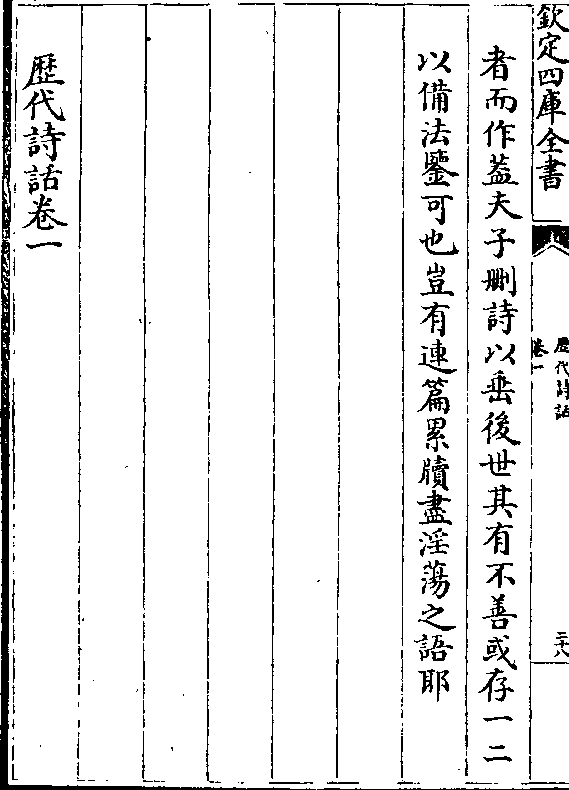 欽定四庫全書
歷代詩話
卷一
二十八
者而作葢夫子刪詩以垂後世其有不善或存一二
以備法鑒可也豈有連篇累牘盡淫蕩之語耶
歷代詩話卷一